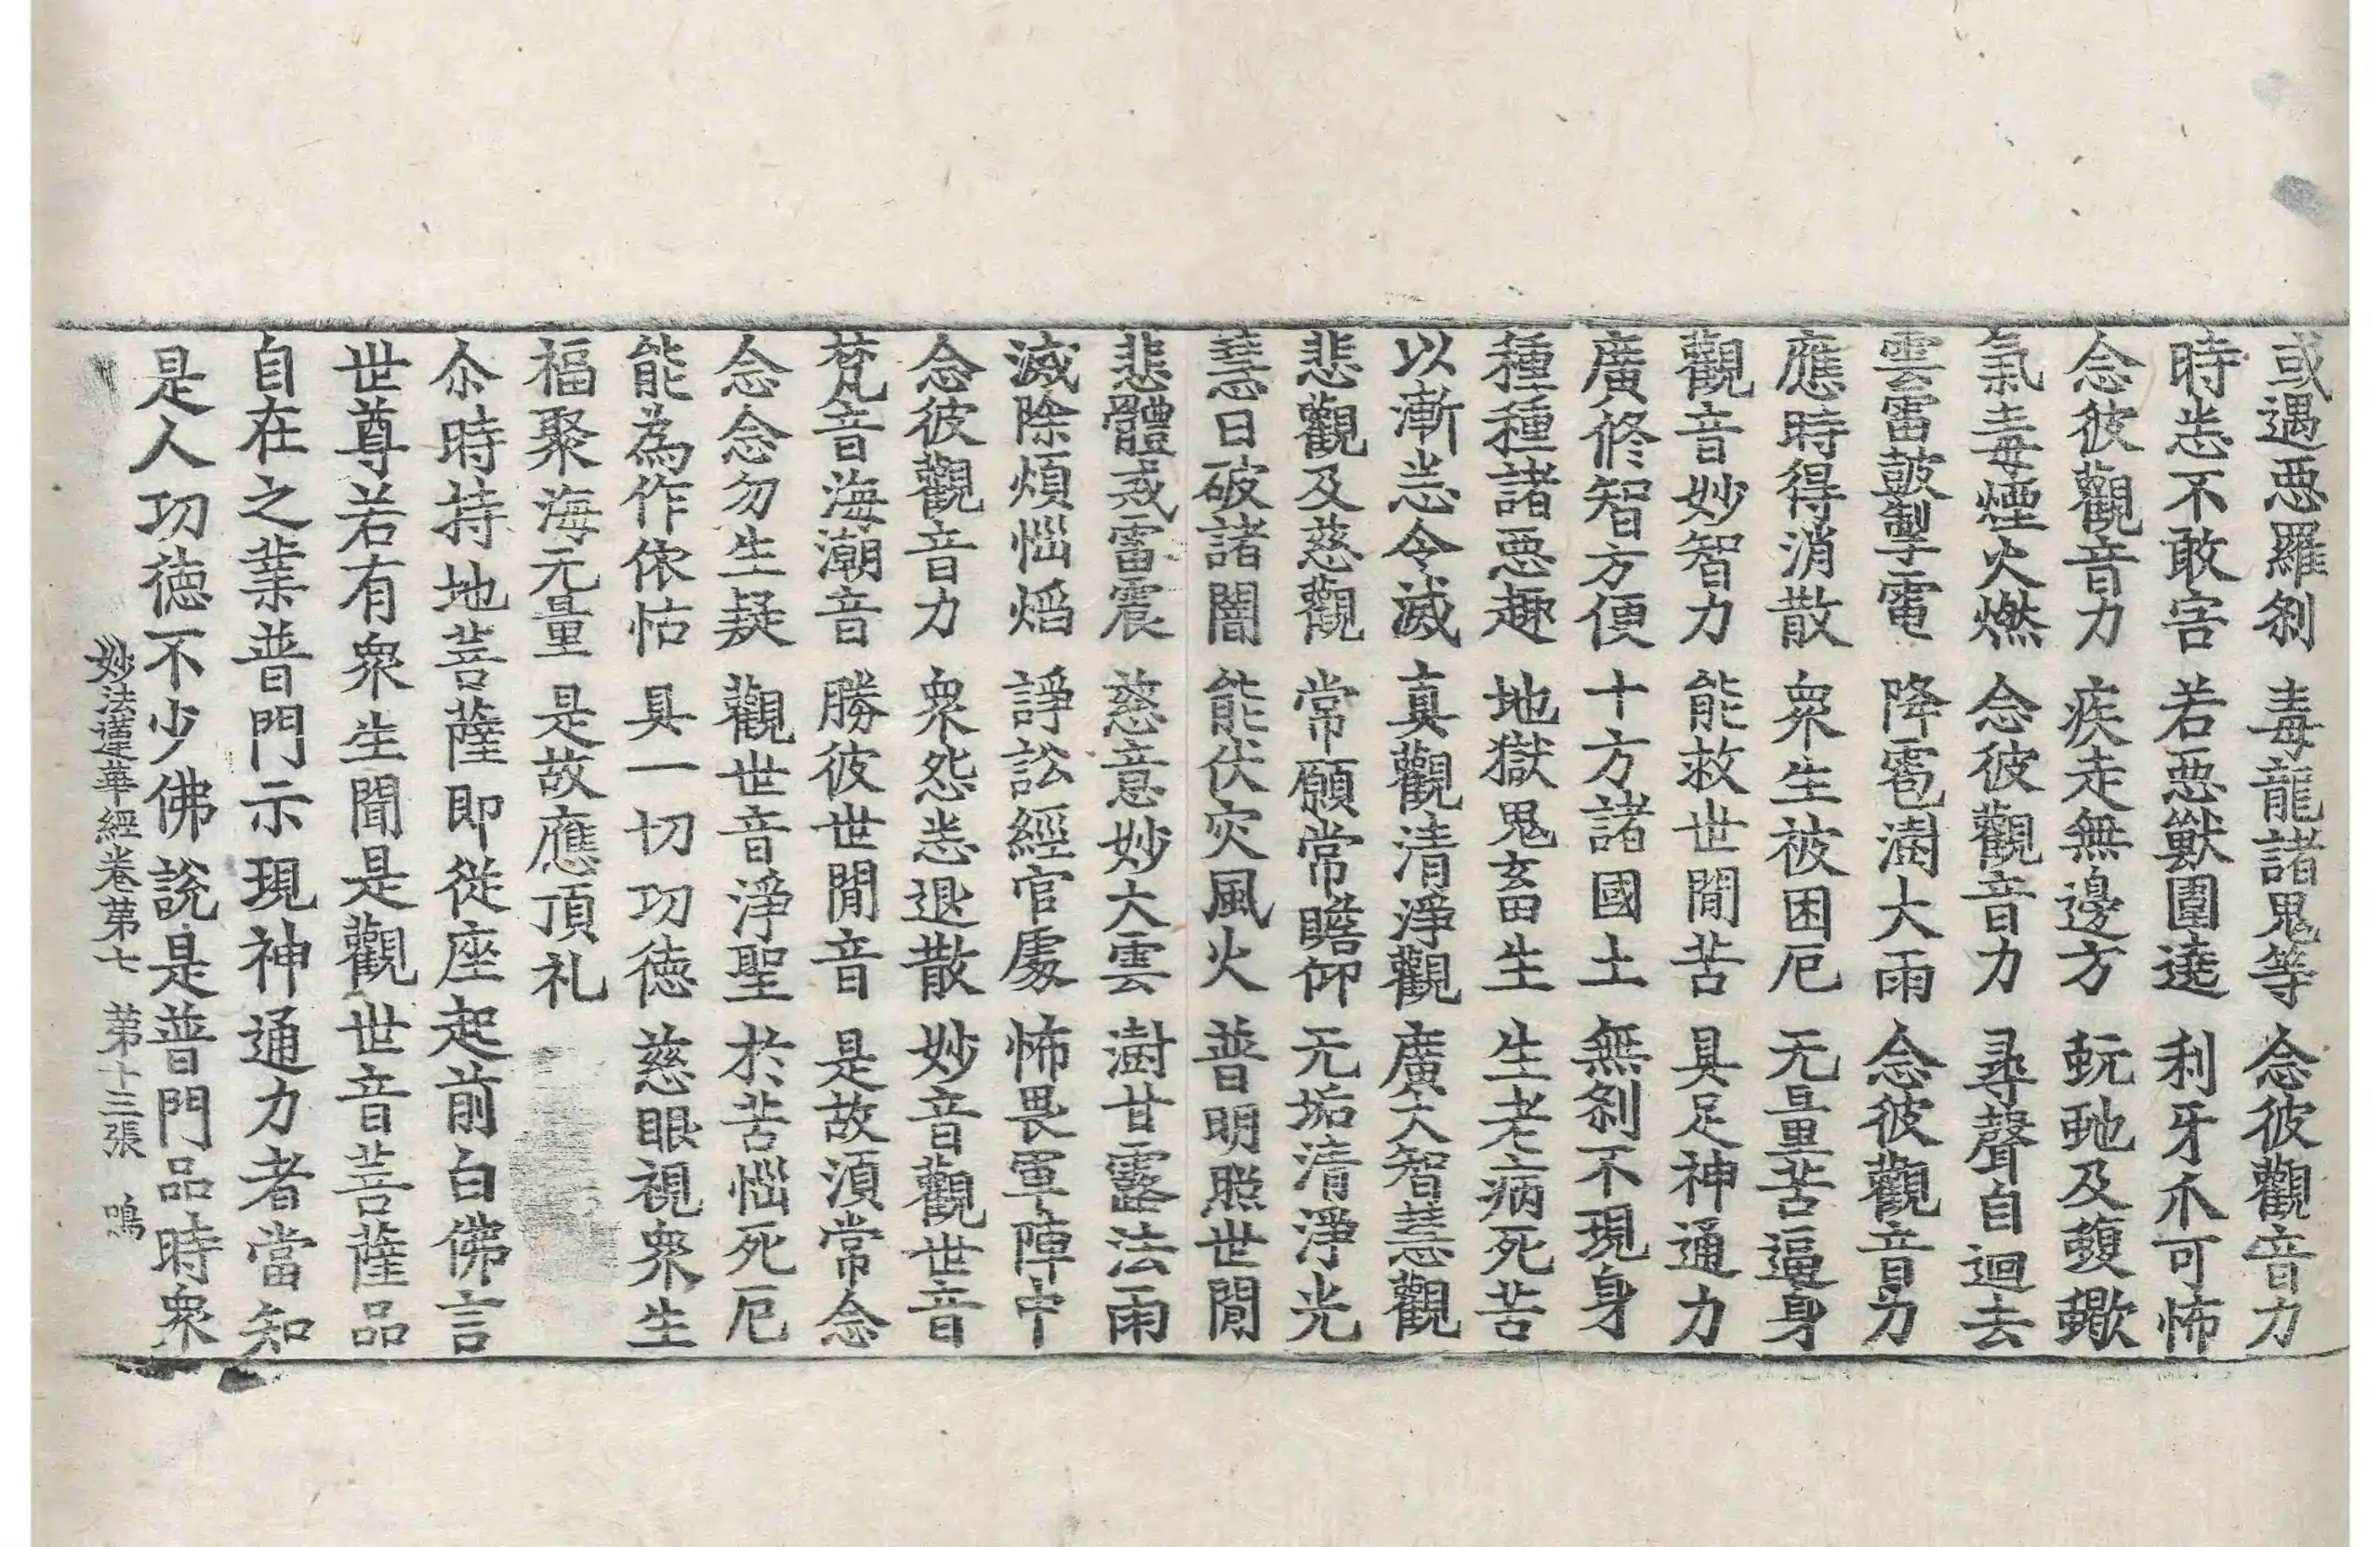 或遇惡羅刹 毒龍諸鬼等 念彼觀音力
時悉不敢害 若惡獸圍遶 利牙爪可怖
念彼觀音力 疾走無邊方 蚖虵及蝮蠍
氣毒煙火燃 念彼觀音力 尋聲自迴去
雲雷皷掣電 降雹澍大雨 念彼觀音力
應時得消散 衆生被困厄 无量苦逼身
觀音妙智力 能救世間苦 具足神通力
廣修智方便 十方諸國土 無刹不現身
種種諸惡趣 地獄鬼畜生 生老病死苦
以漸悉令滅 真觀清淨觀 廣大智慧觀
悲觀及慈觀 常願常瞻仰 无垢清淨光
慧日破諸闇 能伏灾風火 普明照世間
悲體戒雷震 慈意妙大雲 澍甘露法雨
滅除煩惱焰 諍訟經官處 怖畏軍陣中
念彼觀音力 衆怨悉退散 妙音觀世音
梵音海潮音 勝彼世間音 是故須常念
念念勿生疑 觀世音淨聖 於苦惱死厄
能為作依怙 具一切功德 慈眼視衆生
福聚海无量 是故應頂礼
尒時持地菩薩即從座起前白佛言
世尊若有衆生聞是觀世音菩薩品
自在之業普門示現神通力者當知
是人功德不少佛說是普門品時衆
妙法蓮華經卷第七 第十三張 鳴